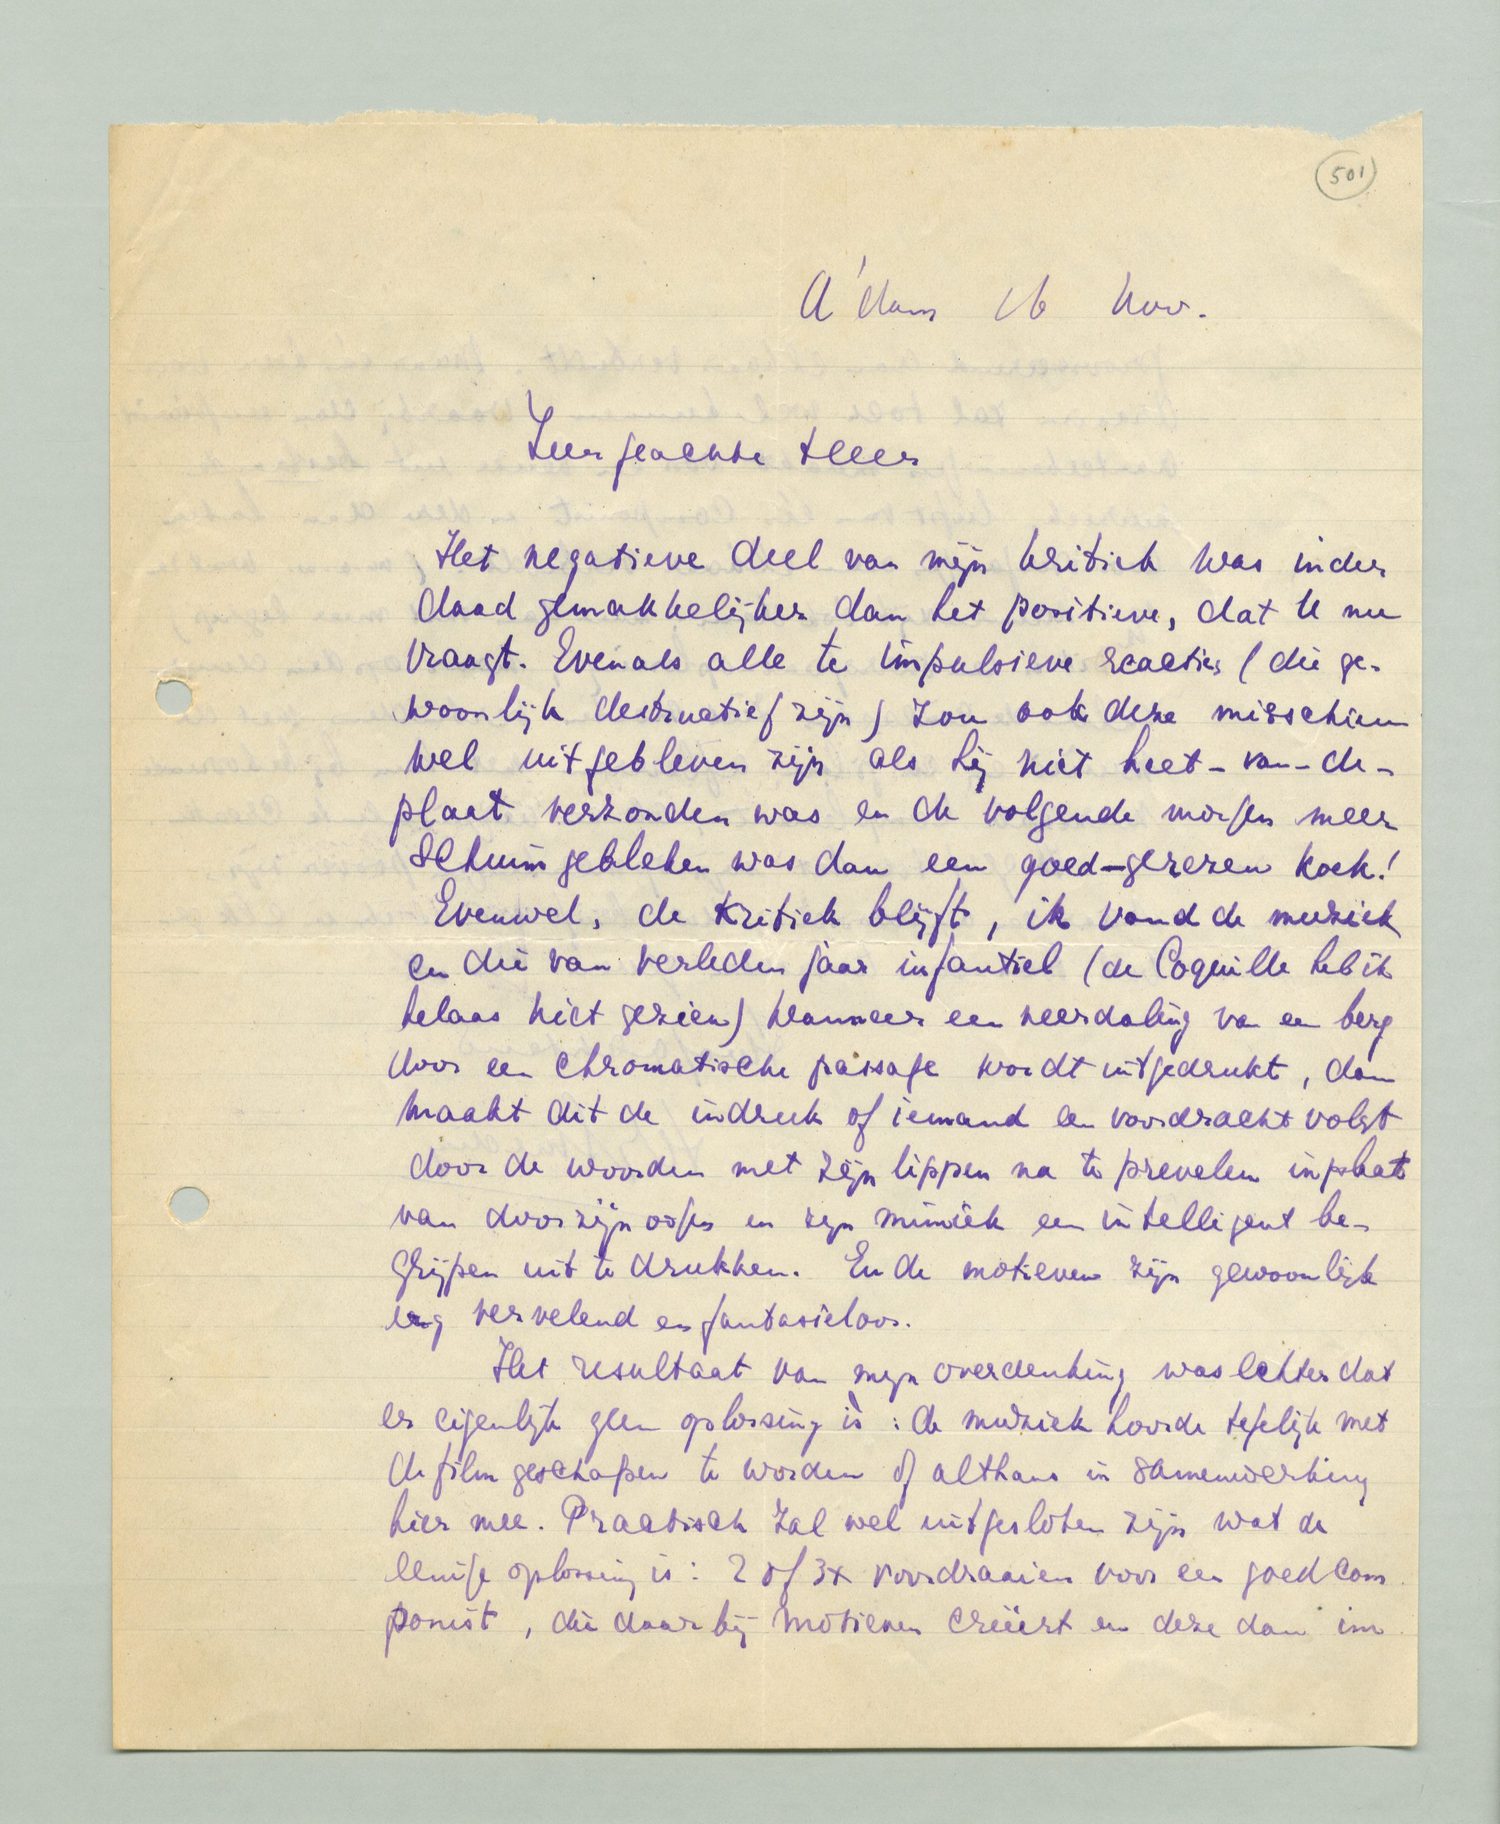 501
A'dam 16 Nov.
Zeer geachte Heer
Het negatieve deel van mijn kritiek was inder
daad gemakkelijker dan het positieve, dat U nu
vraagt. Evenals alle te impulsieve reacties (die ge-
woonlijk destructief zijn) zou ook deze misschien
wel uitgebleven zijn als hij niet heet-van-de-
plaat verzonden was en de volgende morgen meer
schuim gebleken was dan een goed-gerezen koek!
Evenwel, de kritiek blijft, ik vond de muziek
en die van verleden jaar infantiel (de Coquille heb ik
helaas niet gezien) wanneer een neerdaling van een berg
door een chromatische passage wordt uitgedrukt, dan
maakt dit de indruk of iemand een voordracht volgt
door de woorden met zijn lippen na te prevelen inplaats
van door zijn oogen en zijn mimiek een intelligent be-
grijpen uit te drukken. En de motieven zijn gewoonlijk
erg vervelend en fantasieloos.
Het resultaat van mijn overdenking was echter dat
er eigenlijk geen oplossing is: de muziek hoorde tegelijk met
de film geschapen te worden of althans in samenwerking
hier mee. Practisch zal wel uitgesloten zijn wat de
eenige oplossing is: 2 of 3x voordraaien voor een goed com
ponist, die daarbij motieven creëert en deze dan im